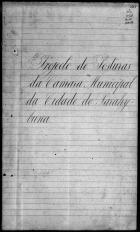 Projecto de Posturas
da Camara Municipal
da Cidade de Parahy-
buna